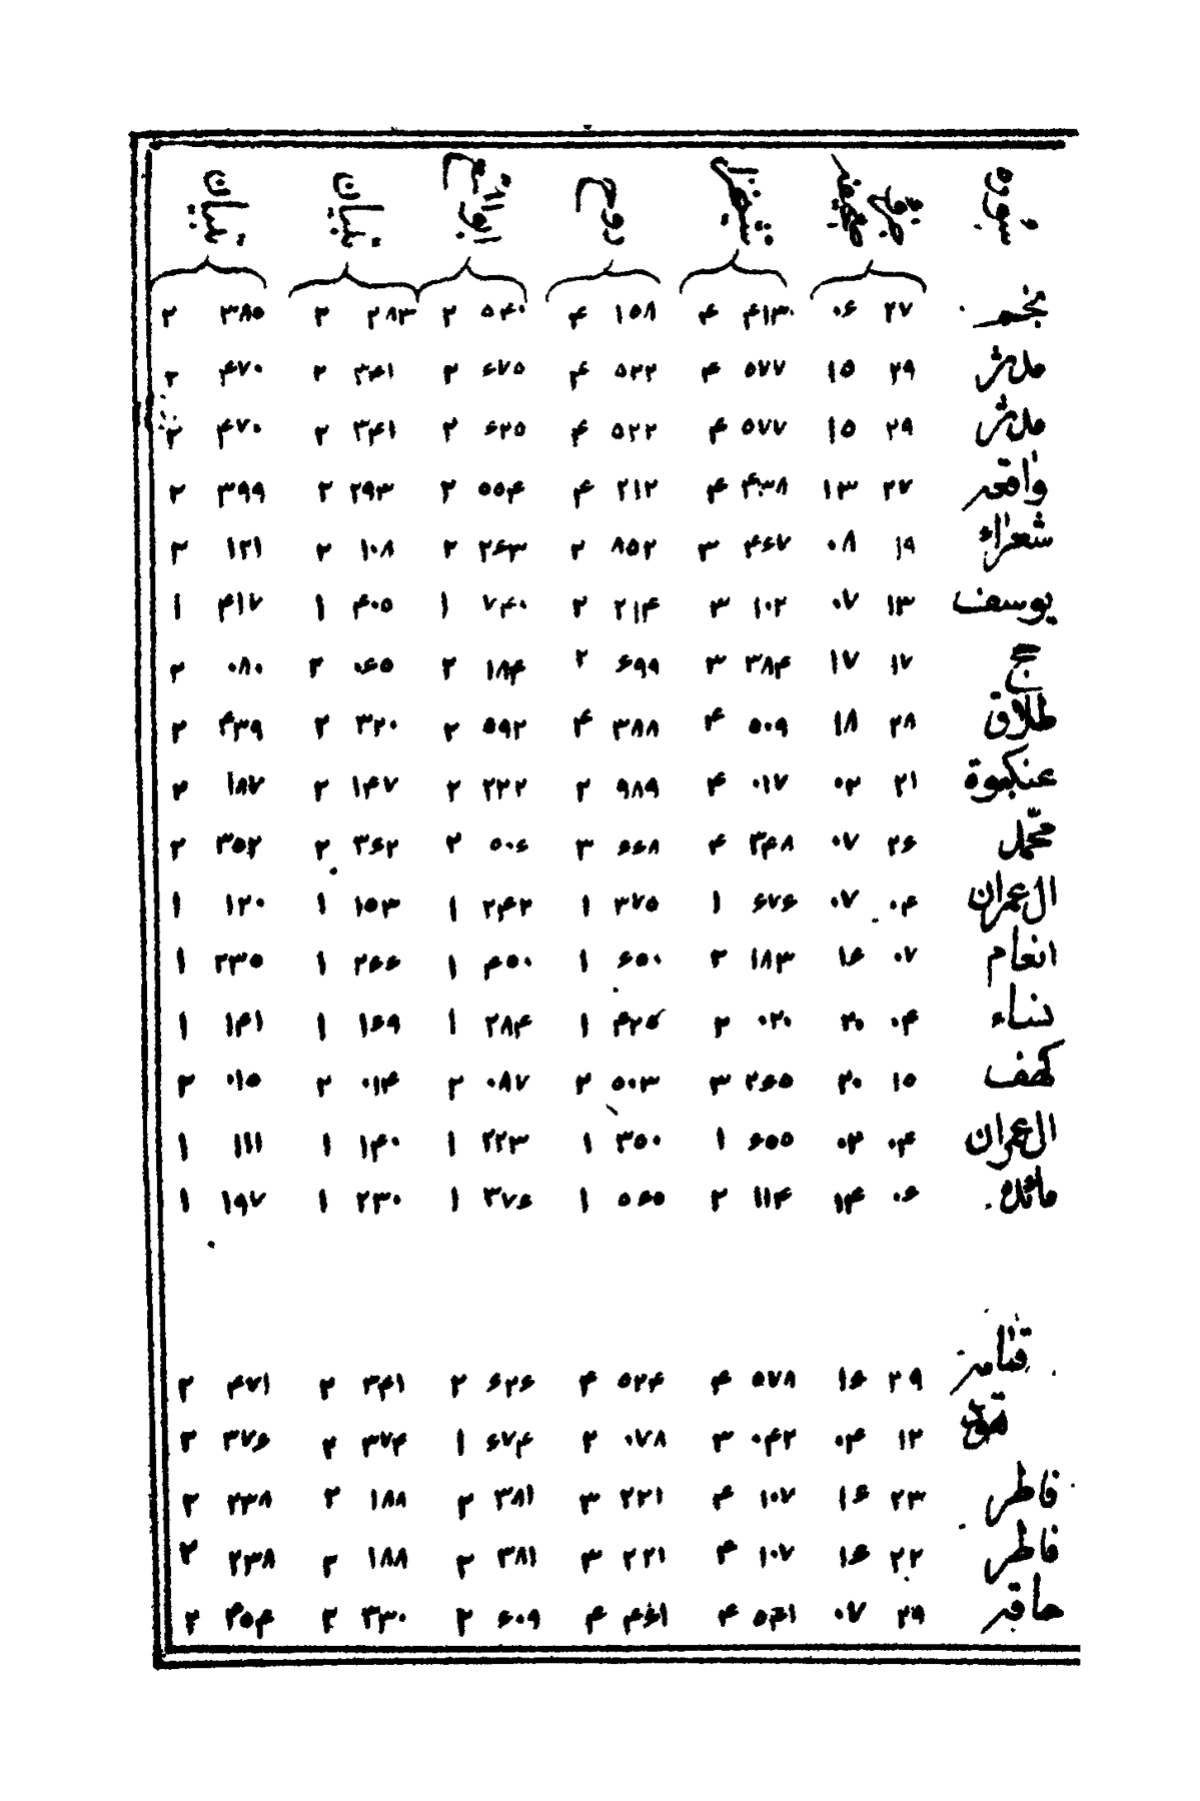 سوره جزو صفحه روح ابوالفتوح تبیان تبیان
نجم ۲۷ ۰۶ ۴۱۳ ۴ ۱۵۸ ۴ ۵۴۰ ۲ ۲۸۳ ۲ ۳۸۵ ۲
مدثر ۲۹ ۱۵ ۵۷۷ ۴ ۵۲۲ ۴ ۶۲۵ ۲ ۳۴۱ ۲ ۴۷۰ ۲
مدثر ۲۹ ۱۵ ۵۷۷ ۴ ۵۲۲ ۴ ۶۲۵ ۲ ۳۴۱ ۲ ۴۷۰ ۲
واقعه ۲۷ ۱۳ ۴۳۸ ۴ ۲۱۲ ۴ ۵۵۴ ۲ ۲۹۳ ۲ ۳۹۹ ۲
شعراء ۱۹ ۰۸ ۴۶۷ ۳ ۸۵۲ ۲ ۲۶۳ ۲ ۱۰۸ ۲ ۱۲۱ ۲
یوسف ۱۳ ۰۷ ۱۰۲ ۳ ۲۱۴ ۲ ۷۴۰ ۱ ۴۰۵ ۱ ۴۱۷ ۱
حج ۱۷ ۱۷ ۳۸۴ ۳ ۶۹۹ ۲ ۱۸۴ ۲ ۰۶۵ ۲ ۰۸۰ ۲
طلاق ۲۸ ۱۸ ۵۰۹ ۴ ۳۸۸ ۴ ۵۹۲ ۲ ۳۲۰ ۲ ۴۳۹ ۲
عنکبوة ۲۱ ۰۲ ۰۱۷ ۴ ۹۸۹ ۲ ۲۲۲ ۲ ۱۴۷ ۲ ۱۸۷ ۲
محمّد ۲۶ ۰۷ ۳۴۸ ۴ ۶۶۸ ۳ ۵۰۶ ۲ ۲۶۲ ۲ ۳۵۲ ۲
ال عمران ۰۴ ۰۷ ۶۷۶ ۱ ۳۷۵ ۱ ۲۴۲ ۱ ۱۵۳ ۱ ۱۲۰ ۱
انعام ۰۷ ۱۶ ۱۸۳ ۲ ۶۵۰ ۱ ۴۵۰ ۱ ۲۶۶ ۱ ۲۳۵ ۱
نساء ۰۴ ۲۰ ۰۲۰ ۲ ۴۲۵ ۱ ۲۸۴ ۱ ۱۶۹ ۱ ۱۴۱ ۱
کهف ۱۵ ۲۰ ۲۶۵ ۳ ۵۰۳ ۲ ۰۸۷ ۲ ۰۱۴ ۲ ۰۱۵ ۲
ال عمران ۰۴ ۰۴ ۶۵۵ ۱ ۳۵۰ ۱ ۲۲۳ ۱ ۱۴۰ ۱ ۱۱۱ ۱
مائده ۰۶ ۱۴ ۱۱۴ ۲ ۵۶۵ ۱ ۳۷۶ ۱ ۲۳۰ ۱ ۱۹۷ ۱
قیامه ۲۹ ۱۶ ۵۷۸ ۴ ۵۲۴ ۴ ۶۲۶ ۲ ۳۴۱ ۲ ۴۷۱ ۲
۱۲ ۰۴ ۰۴۲ ۳ ۰۷۸ ۲ ۶۷۴ ۱ ۳۷۴ ۲ ۳۷۶ ۲
فاطر ۲۳ ۱۶ ۱۰۷ ۴ ۲۲۱ ۳ ۳۸۱ ۲ ۱۸۸ ۲ ۲۳۸ ۲
فاطر ۲۲ ۱۶ ۱۰۷ ۴ ۲۲۱ ۳ ۳۸۱ ۲ ۱۸۸ ۲ ۲۳۸ ۲
حاقه ۲۹ ۰۷ ۵۶۱ ۴ ۴۶۱ ۴ ۶۰۹ ۲ ۳۳۰ ۲ ۴۵۴ ۲